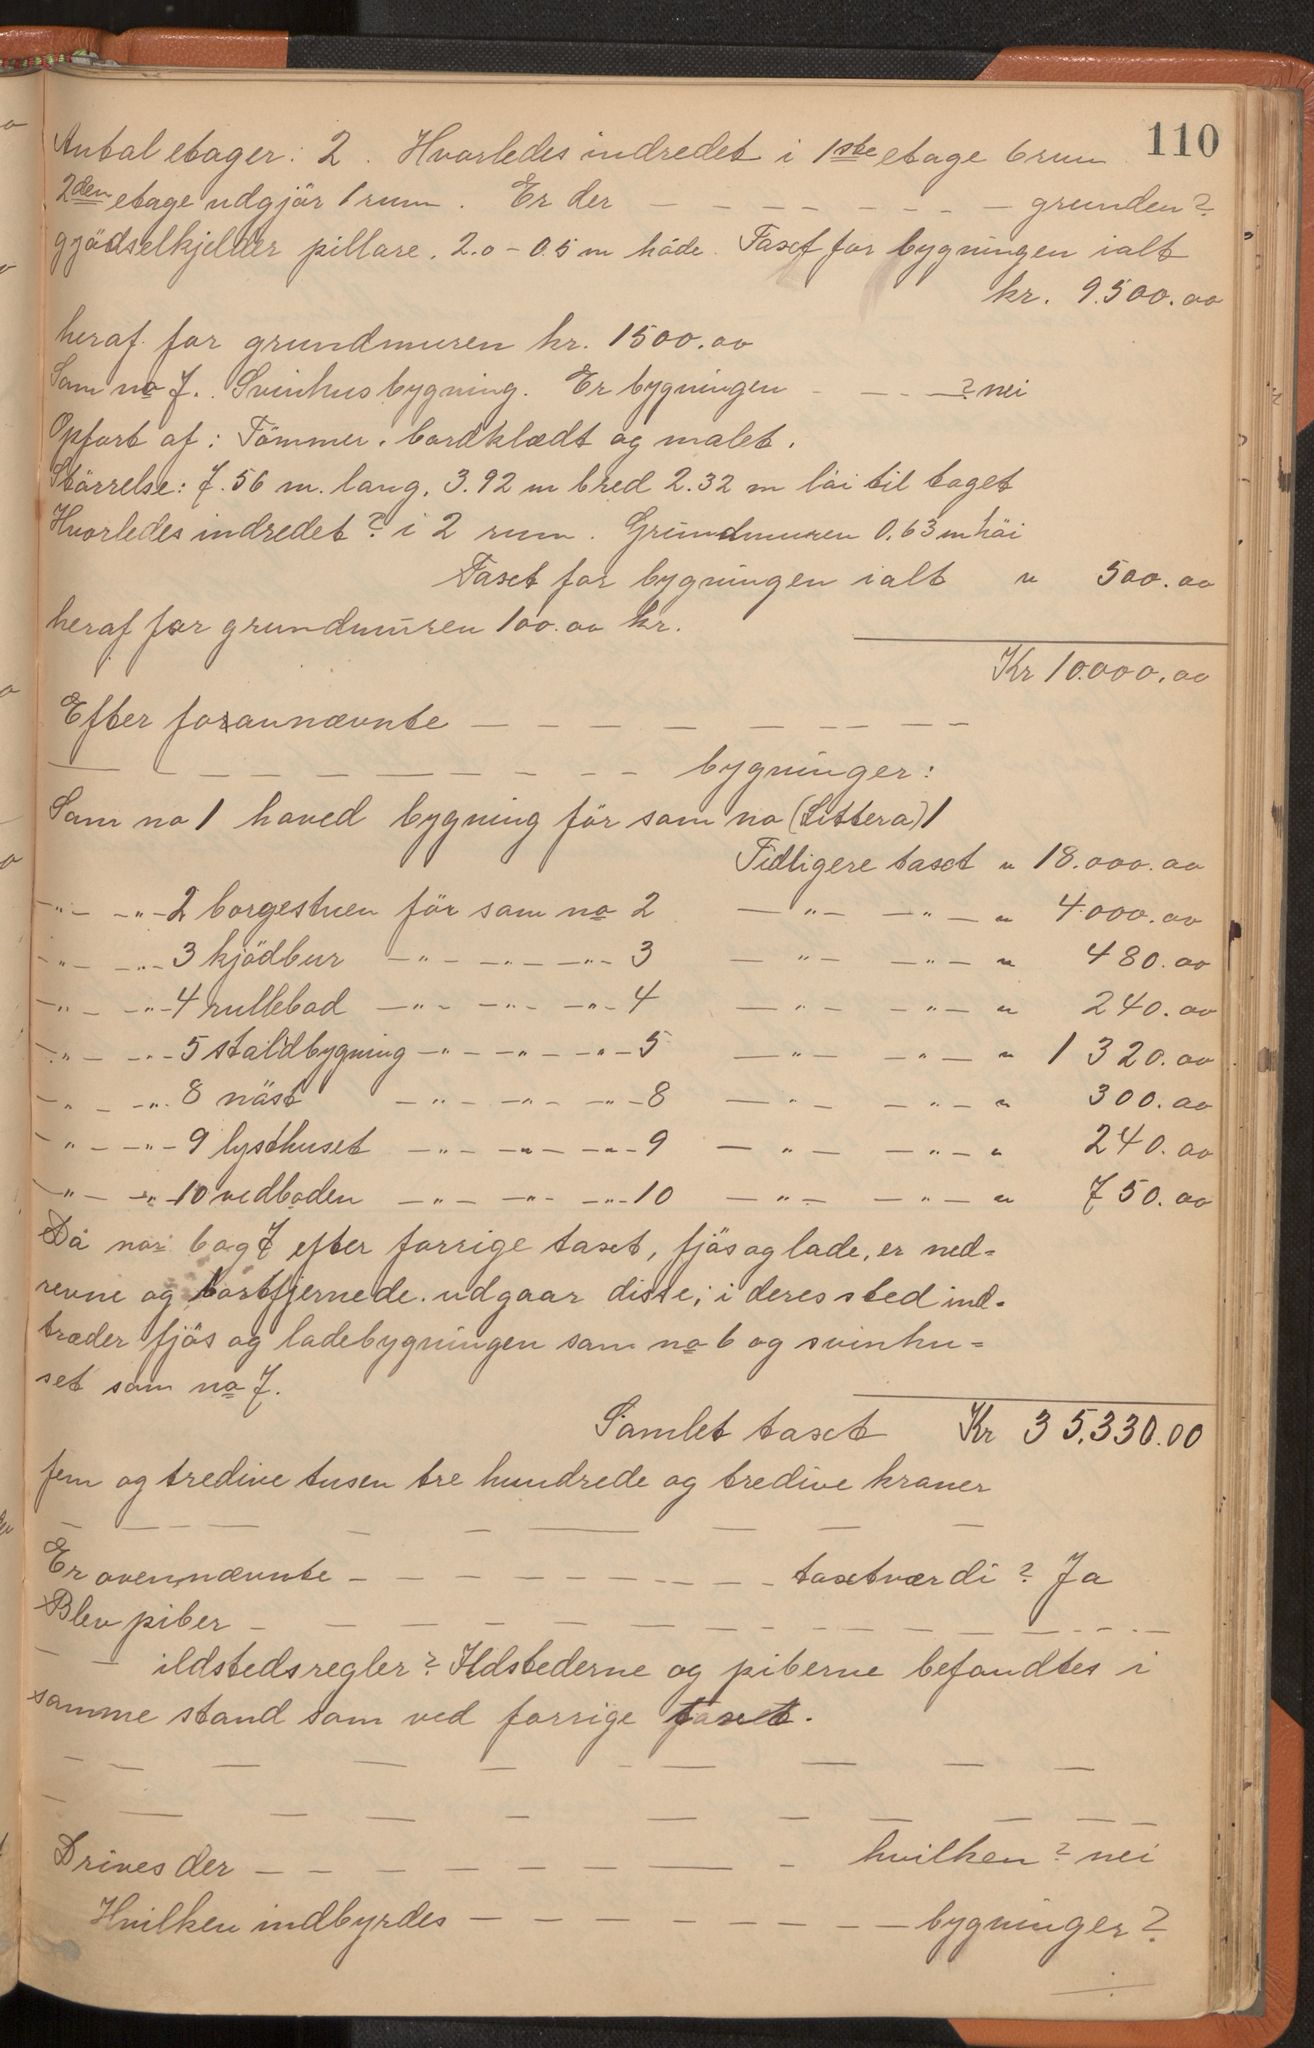 110
Antal etager: 2. Hvorledes indredet i 1ste etage 6 rum
2den etage udgjör 1 rum. Er der — — — — — — — — grunden?
gjödselkjelder pillare. 2.0 - 0.5 m höde. Taxt for bygningen ialt
kr. 9.500.00
heraf for grundmuren kr. 1500.00
Som no 7. Svinhusbygning. Er bygningen - — - —? nei
Opfort af: Tömmer. bordklædt og malet.
Störrelse: 7.56 m. lang, 3.92 m bred 2.32 m höi til taget
Hvorledes indredet? i 2 rum. Grundmuren 0.63 m höi
Taxt for bygningen ialt " 500.00
heraf for grundmuren 100.00 kr.
Kr 10.000.00
Efter foranævnte — — — — — — — — —
— — — — — — — — — bygninger:
Som no 1 hoved bygning för som no (Littera) 1
Tidligere taxt " 18.000.00
—"— —"— 2 borgestuen för som no 2 —"— —"— " 4000.00
—"— —"— 3 kjödbur —"— —"— —"— 3 —"— —"— " 480.00
—"— —"— 4 rullebod —"— —"— —"— 4 —"— —"— " 240.00
—"— —"— 5 staldbygning —"— —"— —"— 5 —"— —"— " 1 320.00
—"— —"— 8 nöst —"— —"— —"— 8 —"— —"— " 300.00
—"— —"— 9 lysthuset —"— —"— —"— 9 —"— —"— " 240.00
—"— —"— 10 vedboden —"— —"— —"— 10 —"— —"— " 750.00
Då nor 6 og 7 efter forrige taxt, fjös og lade, er ned=
revne og bortfjernede. udgaar disse; i deres sted ind=
træder fjös og ladebygningen som no 6 og svinhu=
set som no 7.
Samlet taxt Kr 35,330.00
fem og tredive tusen tre hundrede og tredive kroner
— — — — — — — — — —
Er ovennævnte — — — — — — — — — taxtværdi? Ja
Blev piber — — — — — — — — — — — — —
— — ildstedsregler? Ildstederne og piberne befandtes i
samme stand som ved forrige taxt.
— — — — — — — — — — —
— — — — — — — — — — —
Drives der — — — — — — — — — hvilken? nei
Hvilken indbyrdes — — — — — — — — — bygninger?